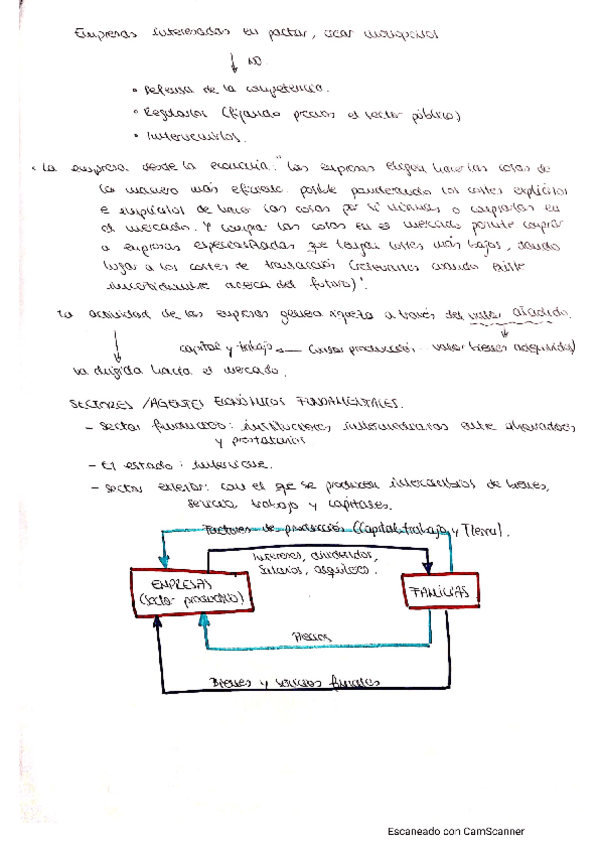 Empresas interesadas en pactar, crear monopolios
↓ NO.
• Defensa de la competencia.
• Regularlos (fijando precios el sector público)
• Intervenirlos.
• La empresa desde la economía: "Las empresas eligen hacer las cosas de
la manera más eficiente posible ponderando los costes explícitos
e implícitos de hacer las cosas por sí mismas o comprarlas en
el mercado. Y comprar las cosas en el mercado permite comprar
a empresas especializadas que tengan costes más bajos, dando
lugar a los costes de transacción (relevantes cuando existe
incertidumbre acerca del futuro)".
La actividad de las empresas genera riqueza a través del valor añadido.
capital y trabajo ← (valor producción - valor bienes adquiridos)
va dirigida hacia el mercado.
SECTORES / AGENTES ECONÓMICOS FUNDAMENTALES.
- Sector financiero: instituciones, intermediarios entre ahorradores
y prestatarios.
- El estado: interviene.
- Sector exterior: con el que se producen intercambios de bienes,
servicios, trabajo y capitales.
Factores de producción (Capital, trabajo y Tierra).
Intereses, dividendos,
Salarios, alquileres.
EMPRESAS
(Sector productivo)
FAMILIAS
Precios
Bienes y servicios finales
Escaneado con CamScanner